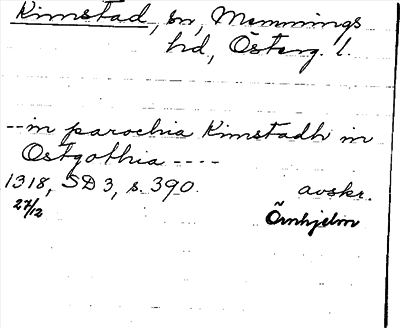 Kimstad, sn, Memmings
hd, Österg. l.
--in parochia Kimstadh in
Ostgothia ----
1318, SD 3, s. 390. avskr.
27/12 Örnhjelm